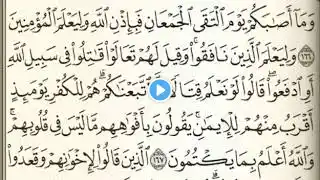 وَمَآ أَصَٰبَكُمْ يَوْمَ ٱلْتَقَى ٱلْجَمْعَانِ فَبِإِذْنِ ٱللَّهِ وَلِيَعْلَمَ ٱلْمُؤْمِنِينَ
١٦٦ وَلِيَعْلَمَ ٱلَّذِينَ نَافَقُوا۟ وَقِيلَ لَهُمْ تَعَالَوْا۟ قَٰتِلُوا۟ فِى سَبِيلِ ٱللَّهِ
أَوِ ٱدْفَعُوا۟ قَالُوا۟ لَوْ نَعْلَمُ قِتَالًا لَّٱتَّبَعْنَٰكُمْ هُمْ لِلْكُفْرِ يَوْمَئِذٍ
أَقْرَبُ مِنْهُمْ لِلْإِيمَٰنِ يَقُولُونَ بِأَفْوَٰهِهِم مَّا لَيْسَ فِى قُلُوبِهِمْ
وَٱللَّهُ أَعْلَمُ بِمَا يَكْتُمُونَ ١٦٧ ٱلَّذِينَ قَالُوا۟ لِإِخْوَٰنِهِمْ وَقَعَدُوا۟